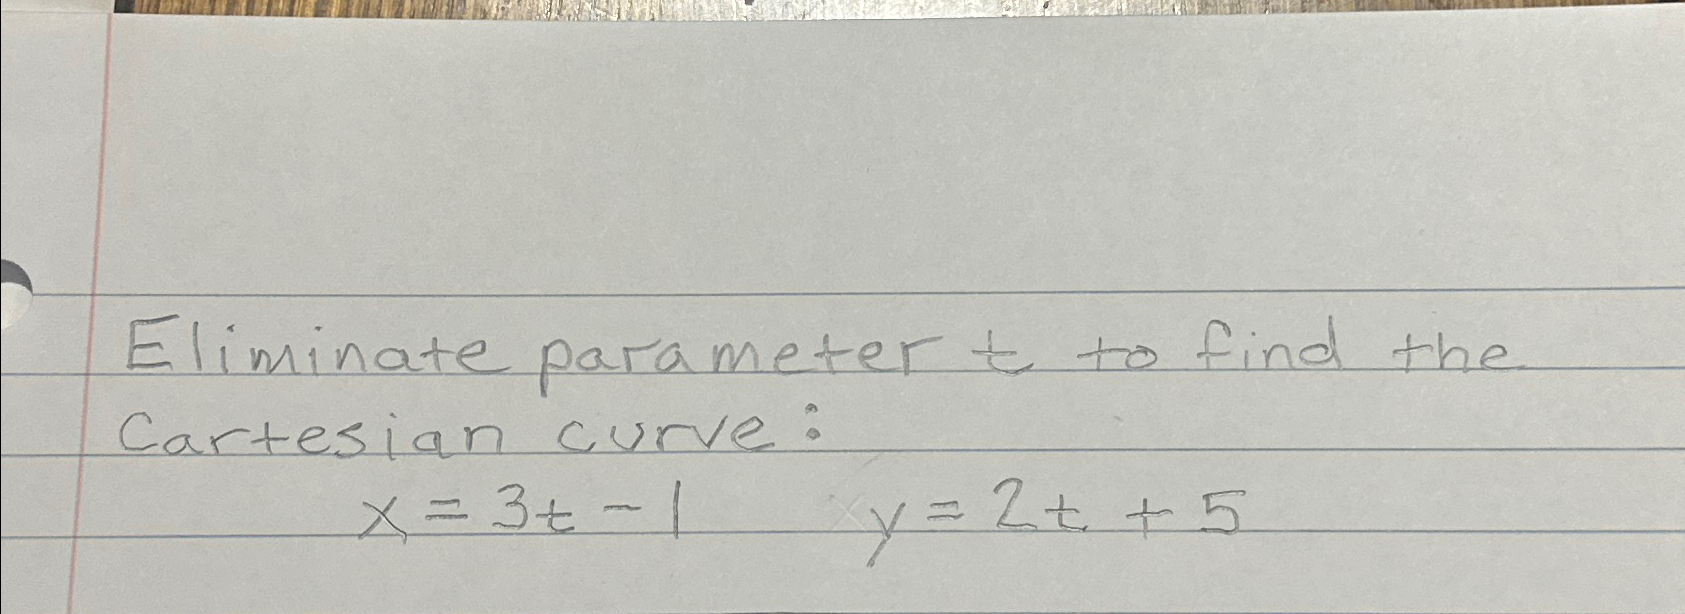 Eliminate parameter t to find the
Cartesian curve:
x = 3t - 1 y = 2t + 5